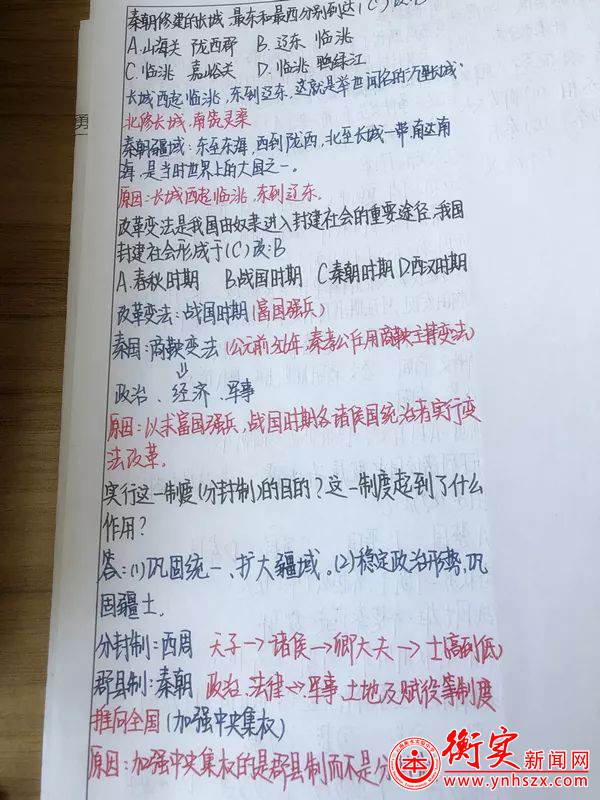 秦朝修建的长城,最东和最西分别到达(C)改:B
A.山海关 陇西郡 B.辽东 临洮
C.临洮 嘉峪关 D.临洮 鸭绿江
长城西起临洮,东到辽东,这就是举世闻名的"万里长城"
北修长城,南凿灵渠
秦朝疆域:东至东海,西到陇西,北至长城一带,南达南
海,是当时世界上的大国之一。
原因:长城西起临洮,东到辽东。
改革变法是我国由奴隶进入封建社会的重要途径,我国
封建社会形成于(C)改:B
A.春秋时期 B.战国时期 C秦朝时期 D西汉时期
改革变法:战国时期(富国强兵)
秦国:商鞅变法(公元前356年,秦孝公任用商鞅主持变法)
⇓
政治、经济、军事
原因:以求富国强兵,战国时期各诸侯国统治者实行变
法改革.
实行这一制度(分封制)的目的?这一制度起到了什么
作用?
答:(1)巩固统一、扩大疆域。(2)稳定政治形势,巩
固疆土.
分封制:西周 天子→诸侯→卿大夫→士(高到低)
郡县制:秦朝 政治、法律 军事 土地及赋役等制度
推向全国(加强中央集权)
原因:加强中央集权的是郡县制而不是分
勇
衡实新闻网
www.ynhszx.com